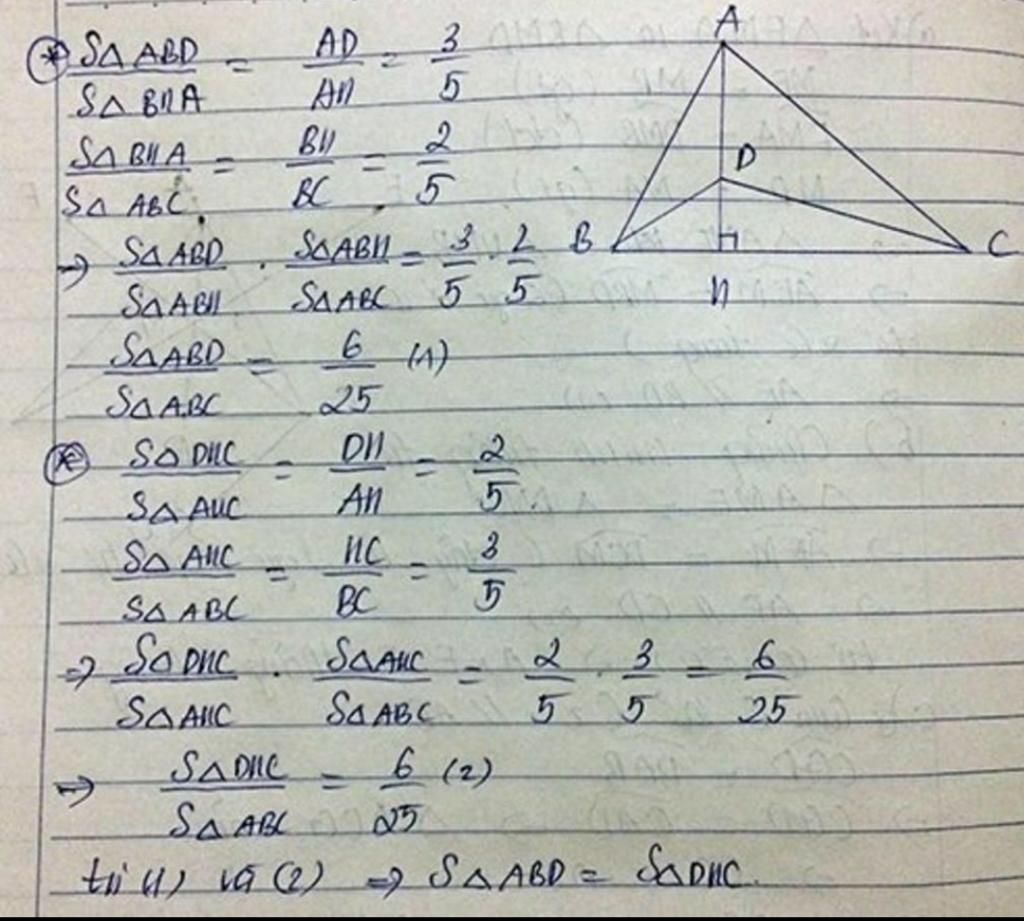 (*) SΔABD / SΔBHA = AD / AH = 3 / 5
SΔBHA / SΔABC = BH / BC = 2 / 5
=> SΔABD / SΔABH . SΔABH / SΔABC = 3/5 . 2/5
SΔABD / SΔABC = 6 / 25 (1)
(*) SΔDHC / SΔAHC = DH / AH = 2 / 5
SΔAHC / SΔABC = HC / BC = 3 / 5
=> SΔDHC / SΔAHC . SΔAHC / SΔABC = 2/5 . 3/5 = 6/25
=> SΔDHC / SΔABC = 6 / 25 (2)
từ (1) và (2) => SΔABD = SΔDHC.
A
D
B
C
H